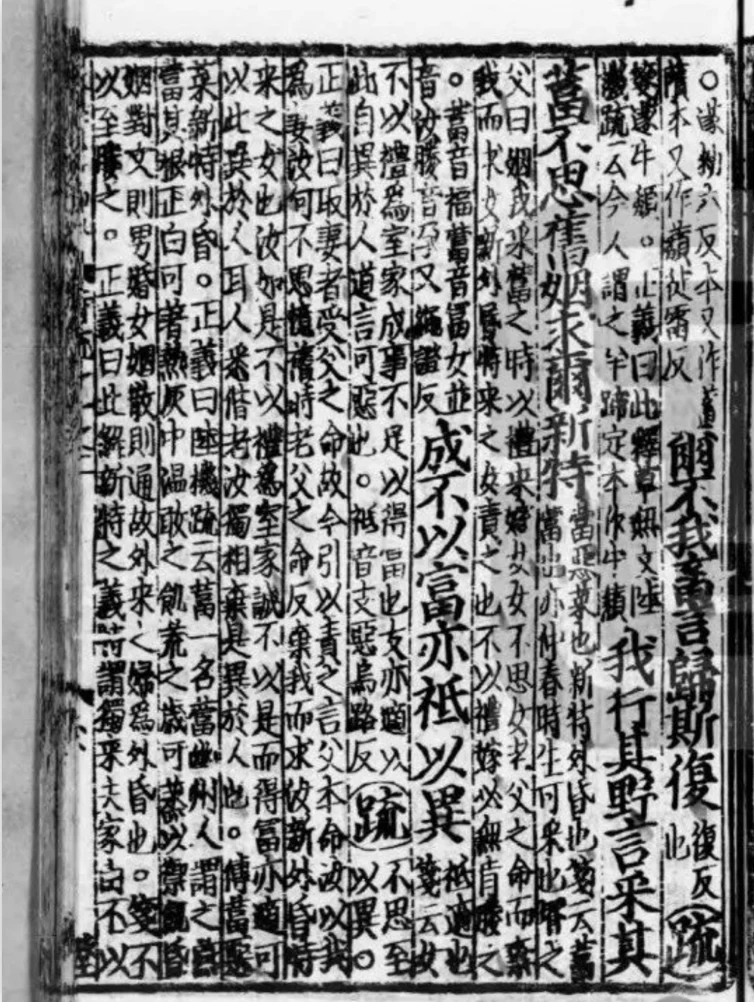 ○蓫勑六反本又作蓄
蘈本又作蘈徒雷反
爾不我畜言歸斯復
復反
也
疏
箋蓫牛蘈○正義曰此釋草無文陸
機疏云今人謂之羊蹄定本作牛蘈
我行其野言采其
葍不思舊姻求爾新特
葍惡菜也新特外昏也箋云葍
䔰也亦仲春時生可采也壻之
父曰姻我采葍之時以禮來嫁女女不思女老父之命而棄
我而求女新外昏特來之女責之也不以禮嫁必無肯媵之
○葍音福䔰音富女並
音汝媵音孕又繩證反
成不以富亦祗以異
祗適也
箋云女
不以禮爲室家成事不足以得富也女亦適以
此自異於人道言可惡也○祗音支惡烏路反
疏
不思至
以異○
正義曰取妻者受父之命故今引以責之言父本命汝以我
為妻汝何不思憶舊時老父之命反棄我而求汝新外昏特
來之女也汝如是不以禮爲室家誠不以是而得富亦適可
以此異於人耳人悉偕老汝獨相棄是異於人也○傳葍惡
菜新特外昏○正義曰陸機疏云葍一名䔰幽州人謂之燕
䔰其根正白可著熱灰中温噉之飢荒之歲可蒸以禦飢昏
姻對文則男婚女姻散則通故外來之婦爲外昏也○箋不
以至媵之○正義曰此解新特之義特謂獨來夫家由不以